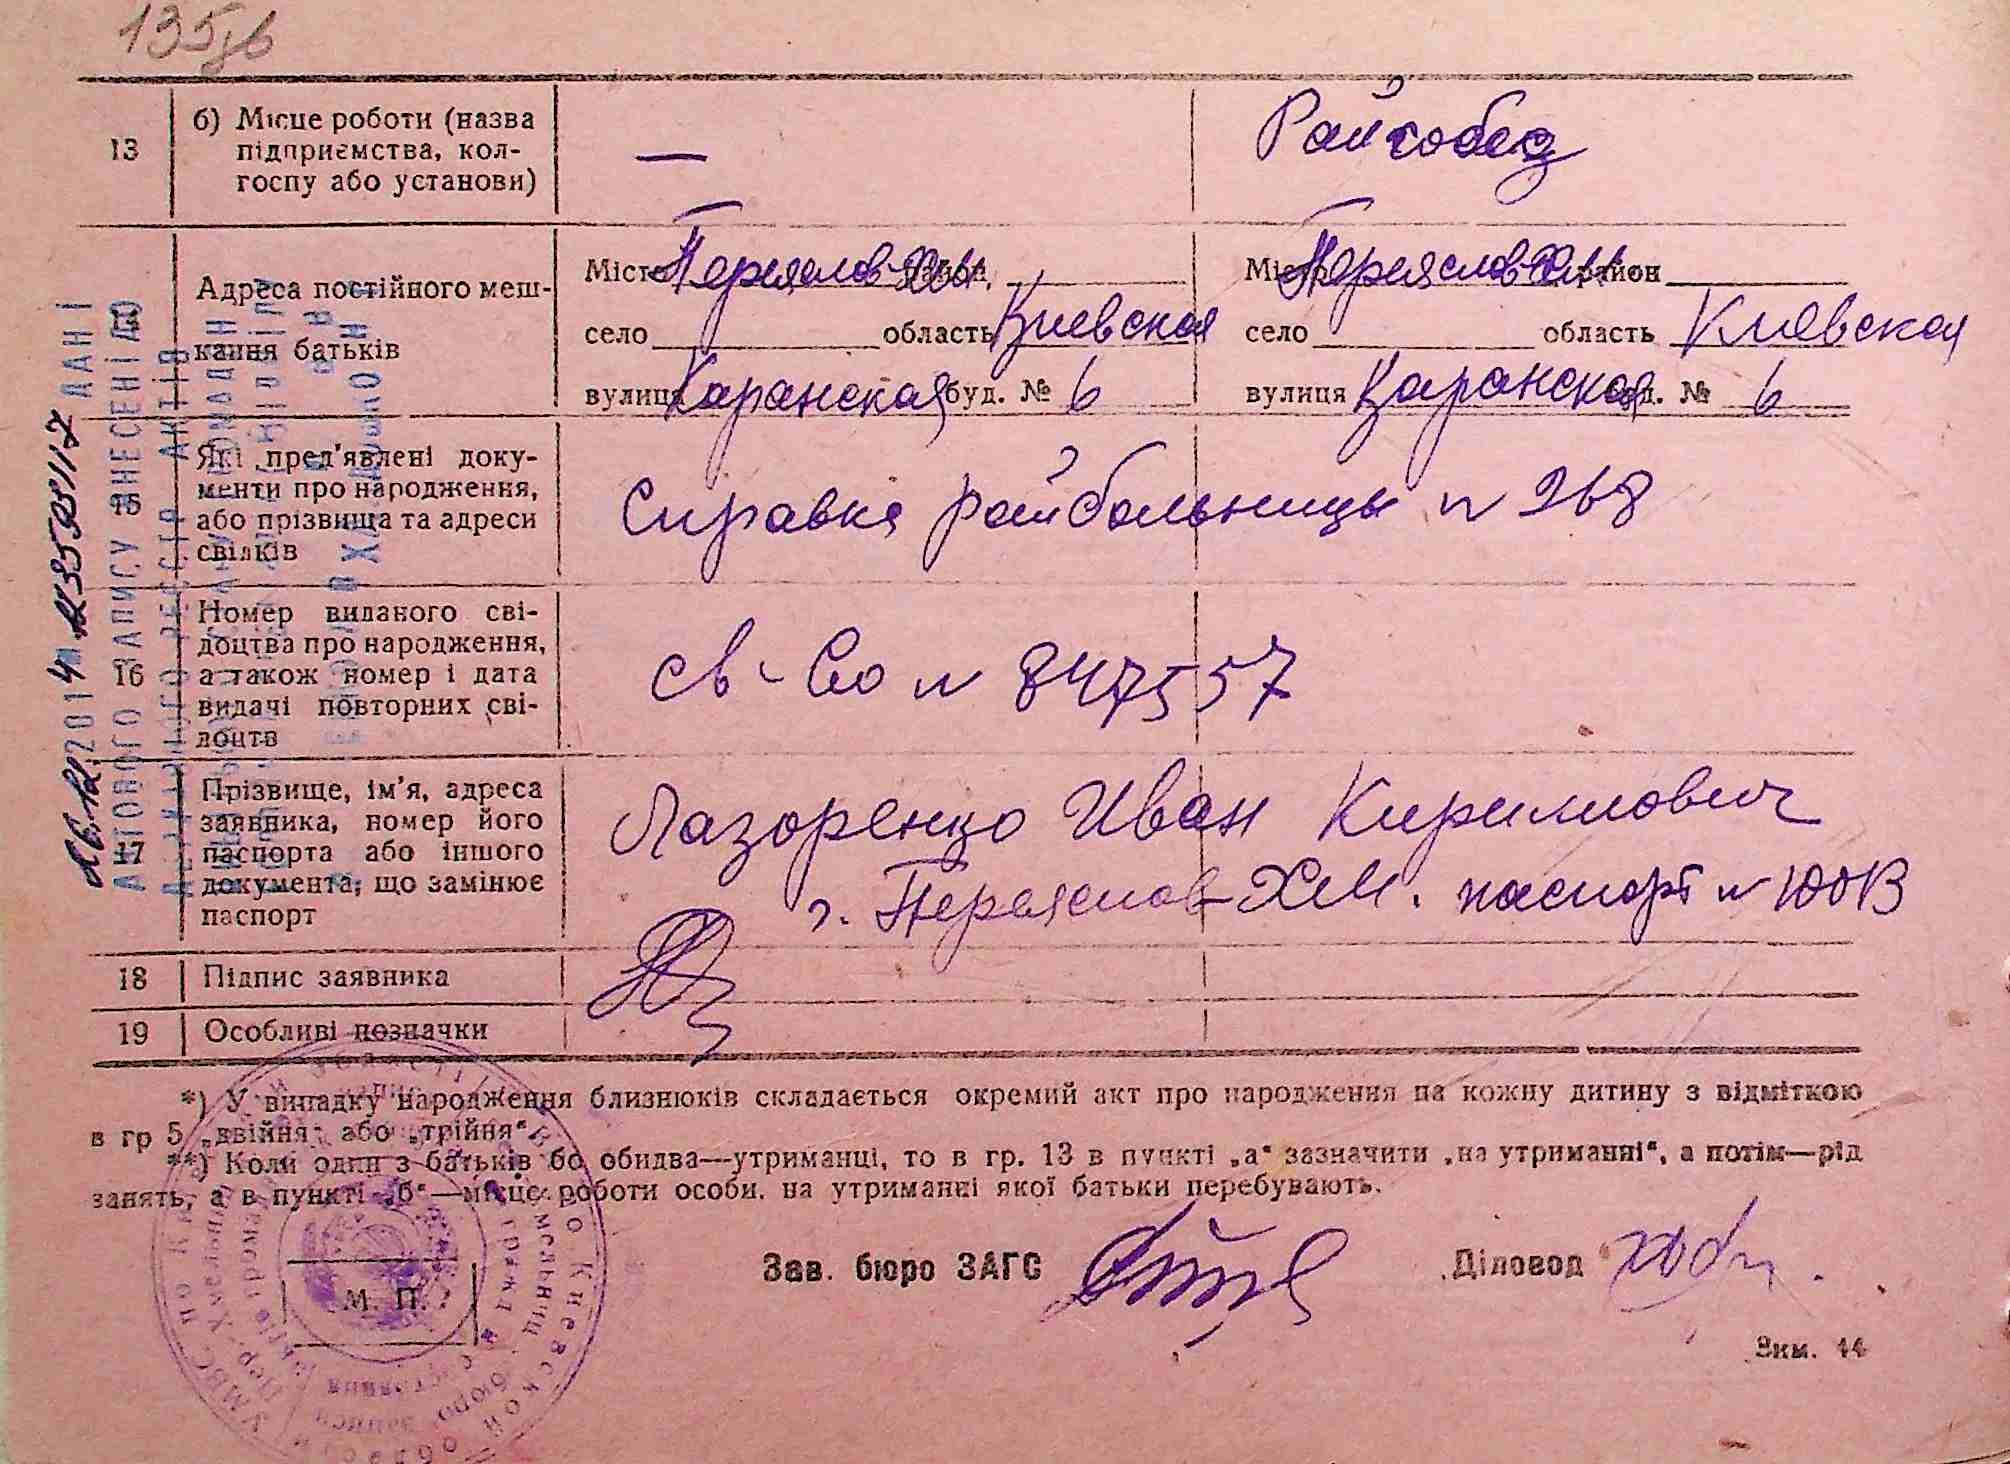 135зв
13
б) Місце роботи (назва
підприємства, кол-
госпу або установи)
—
Райсобез
Адреса постійного меш-
кання батьків
Місто Переяслов-Хм. район
село область Киевская
вулиця Каранская буд. № 6
Місто Переяслов-Хм. район
село область Киевская
вулиця Каранская буд. № 6
15
Які пред'явлені доку-
менти про народження,
або прізвища та адреси
свідків
Справка райбольницы № 268
16
Номер виданого сві-
доцтва про народження,
а також номер і дата
видачі повторних сві-
доцтв
св-во № 847557
17
Прізвище, ім'я, адреса
заявника, номер його
паспорта або іншого
документа, що замінює
паспорт
Лазоренко Иван Кирилович
г. Переяслов-Хм. паспорт №
18
Підпис заявника
19
Особливі позначки
*) У випадку народження близнюків складається окремий акт про народження на кожну дитину з відміткою
в гр 5 „двійня" або „трійня"
**) Коли один з батьків бо обидва—утриманці, то в гр. 13 в пункті „а" зазначити „на утриманні", а потім—рід
занять, а в пункті „б"—місце роботи особи, на утриманні якої батьки перебувають.
Зав. бюро ЗАГС
Діловод
М. П.
Зкм. 44
ДАНІ
АКТОВОГО ЗАПИСУ ВНЕСЕНІ ДО